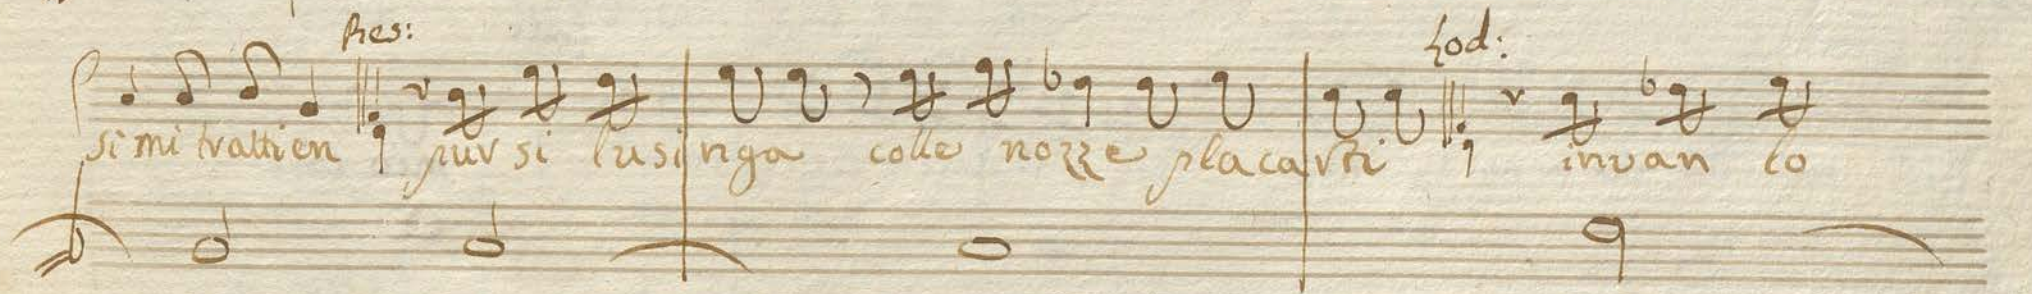 Res: Lod:
si mi trattien pur si lusinga colle nozze placarti invan lo